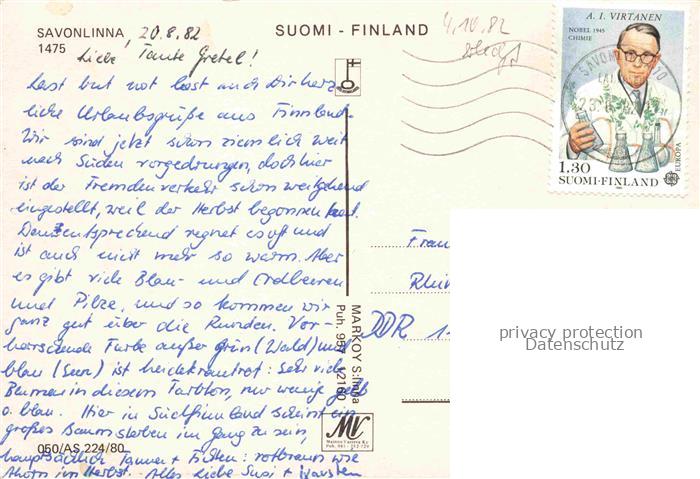 SAVONLINNA
1475
20.8.82
SUOMI - FINLAND
4.10.82
A. I. VIRTANEN
NOBEL 1945
CHIMIE
1.30
SUOMI-FINLAND
EUROPA
Liebe Tante Gretel!
Last but not least auch Dir herz-
liche Urlaubsgrüße aus Finnland.
Wir sind jetzt schon ziemlich weit
nach Süden vorgedrungen, doch hier
ist der Fremdenverkehr schon weitgehend
eingestellt, weil der Herbst begonnen hat.
Dementsprechend regnet es oft und
ist auch nicht mehr so warm. Aber
es gibt viele Blau- und Erdbeeren
und Pilze, und so kommen wir
ganz gut über die Runden. Vor-
herrschende Farbe außer grün (Wald) und
blau (Seen) ist heidekrautrot: sehr viele
Blumen in diesem Farbton, nur wenige gelb
o. blau. Hier in Südfinnland scheint ein
großes Baumsterben im Gang zu sein,
hauptsächlich Tannen + Fichten: rotbraun wie
Ahorn im Herbst. Alles Liebe Susi + Karsten
Frau
Rhein
DDR 1
MARKOY S:linna
MV
050/AS 224/80
privacy protection
Datenschutz